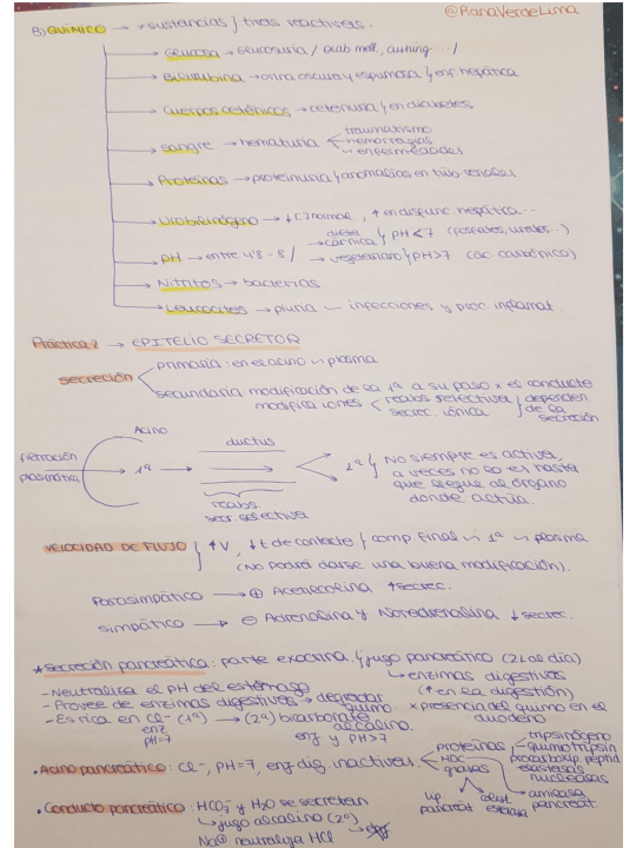 @RanaVerdeLima
B) QUÍMICO → × sustancias } tiras reactivas.
→ Glucosa → Glucosuria / Diab mell, cushing... /
→ Bilirrubina → orina oscura y espumosa } enf. hepática
→ Cuerpos cetónicos → cetonuria } en diabetes
→ Sangre → hematuria < traumatismo
hemorragias
enfermedades
→ Proteínas → proteinuria } anomalías en túb. renales
→ Urobilinógeno → ↓ [ ] normal, ↑ en disfunc. hepática...
→ PH → entre 4'8 - 8 / → dieta cárnica } PH<7 (fosfatos, uratos...)
→ vegetariano } PH>7 (ác. carbónico)
→ Nitritos → bacterias
→ Leucocitos → piuria ~ infecciones y proc. inflamat.
Práctica 2 → EPITELIO SECRETOR
secreción < primaria: en el acino ~ plasma
secundaria: modificación de la 1ª a su paso × el conducto
modificaciones < reabs selectiva } dependen
secrec. iónica } de la
secreción
Acino ductus
filtración
plasmática → 1ª → 2ª } No siempre es activa,
a veces no lo es hasta
que llegue al órgano
donde actúa.
reabs.
secr. selectiva
VELOCIDAD DE FLUJO } ↑V, ↓t de contacto } comp final ~ 1ª ~ plasma
(No podrá darse una buena modificación).
Parasimpático → ⊕ Acetilcolina ↑secrec.
simpático → ⊖ Adrenalina y Noradrenalina ↓ secrec.
* secreción pancreática: parte exocrina } jugo pancreático (2L al día)
↳ enzimas digestivas
(↑ en la digestión)
× presencia del quimo en el
duodeno
- Neutraliza el PH del estómago
- Provee de enzimas digestivas → degradar
quimo
- Es rica en Cl- (1ª) → (2ª) bicarbonato
alcalino.
enz
pH=7
enz y PH>7
· Acino pancreático: Cl-, PH=7, enz dig. inactivas. < proteínas < tripsinógeno
quimotripsin
procarboxip. peptid
elastasas
nucleasas
HDC → amilasa
pancreát.
grasas
lip.
pancreát
colest.
esterasa
· Conducto pancreático: HCO₃⁻ y H₂O se secretan
↳ jugo alcalino (2º)
Na⊕ neutraliza HCl